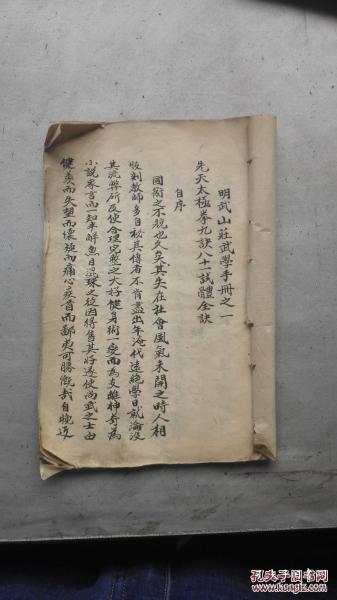 明武山莊武學手冊之一
先天太極拳九訣八十一試體全訣
自序
國術之不競也久矣其失在社會風氣未開之時人相
收剝教師多自秘其傳者不肯盡出年淹代遠絕學日就淪沒
其流弊所及使合理完整之大好健身術一變而為支離神奇為
小說家言而一知半解魚目混珠之後因得售其好遂使尚武之士由
健羨而失望而懷疑而痛心疾首而鄙夷可勝慨哉自晚近
孔夫子旧书网